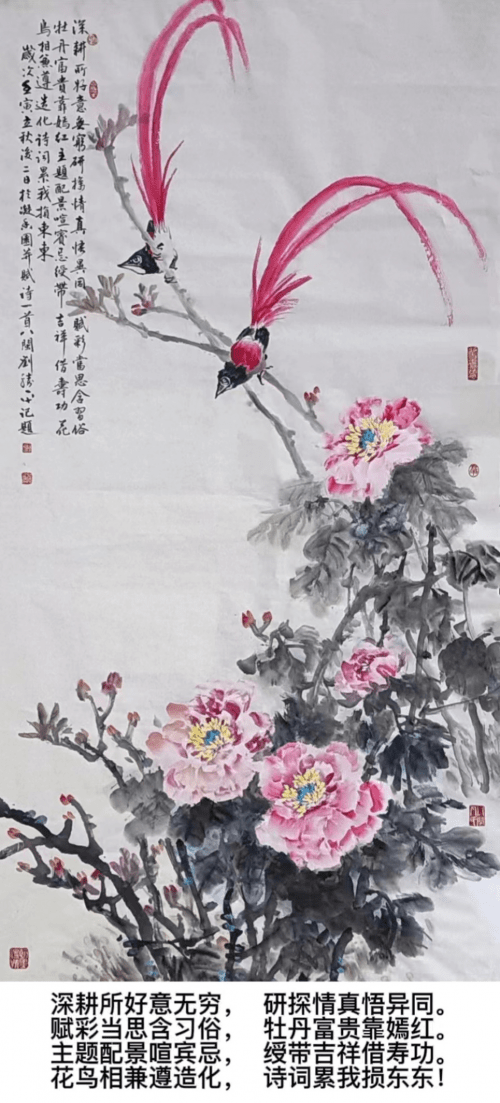 深耕所好意無窮研探情真悟異同賦彩當思含習俗
牡丹富貴靠嫣紅主題配景喧賓忌綬帶吉祥借壽功花
鳥相兼遵造化詩詞累我損東東
歲次壬寅立秋後二日於凝香園并賦詩一首八閩劉記題
深耕所好意无穷， 研探情真悟异同。
赋彩当思含习俗， 牡丹富贵靠嫣红。
主题配景喧宾忌， 绶带吉祥借寿功。
花鸟相兼遵造化， 诗词累我损东东！